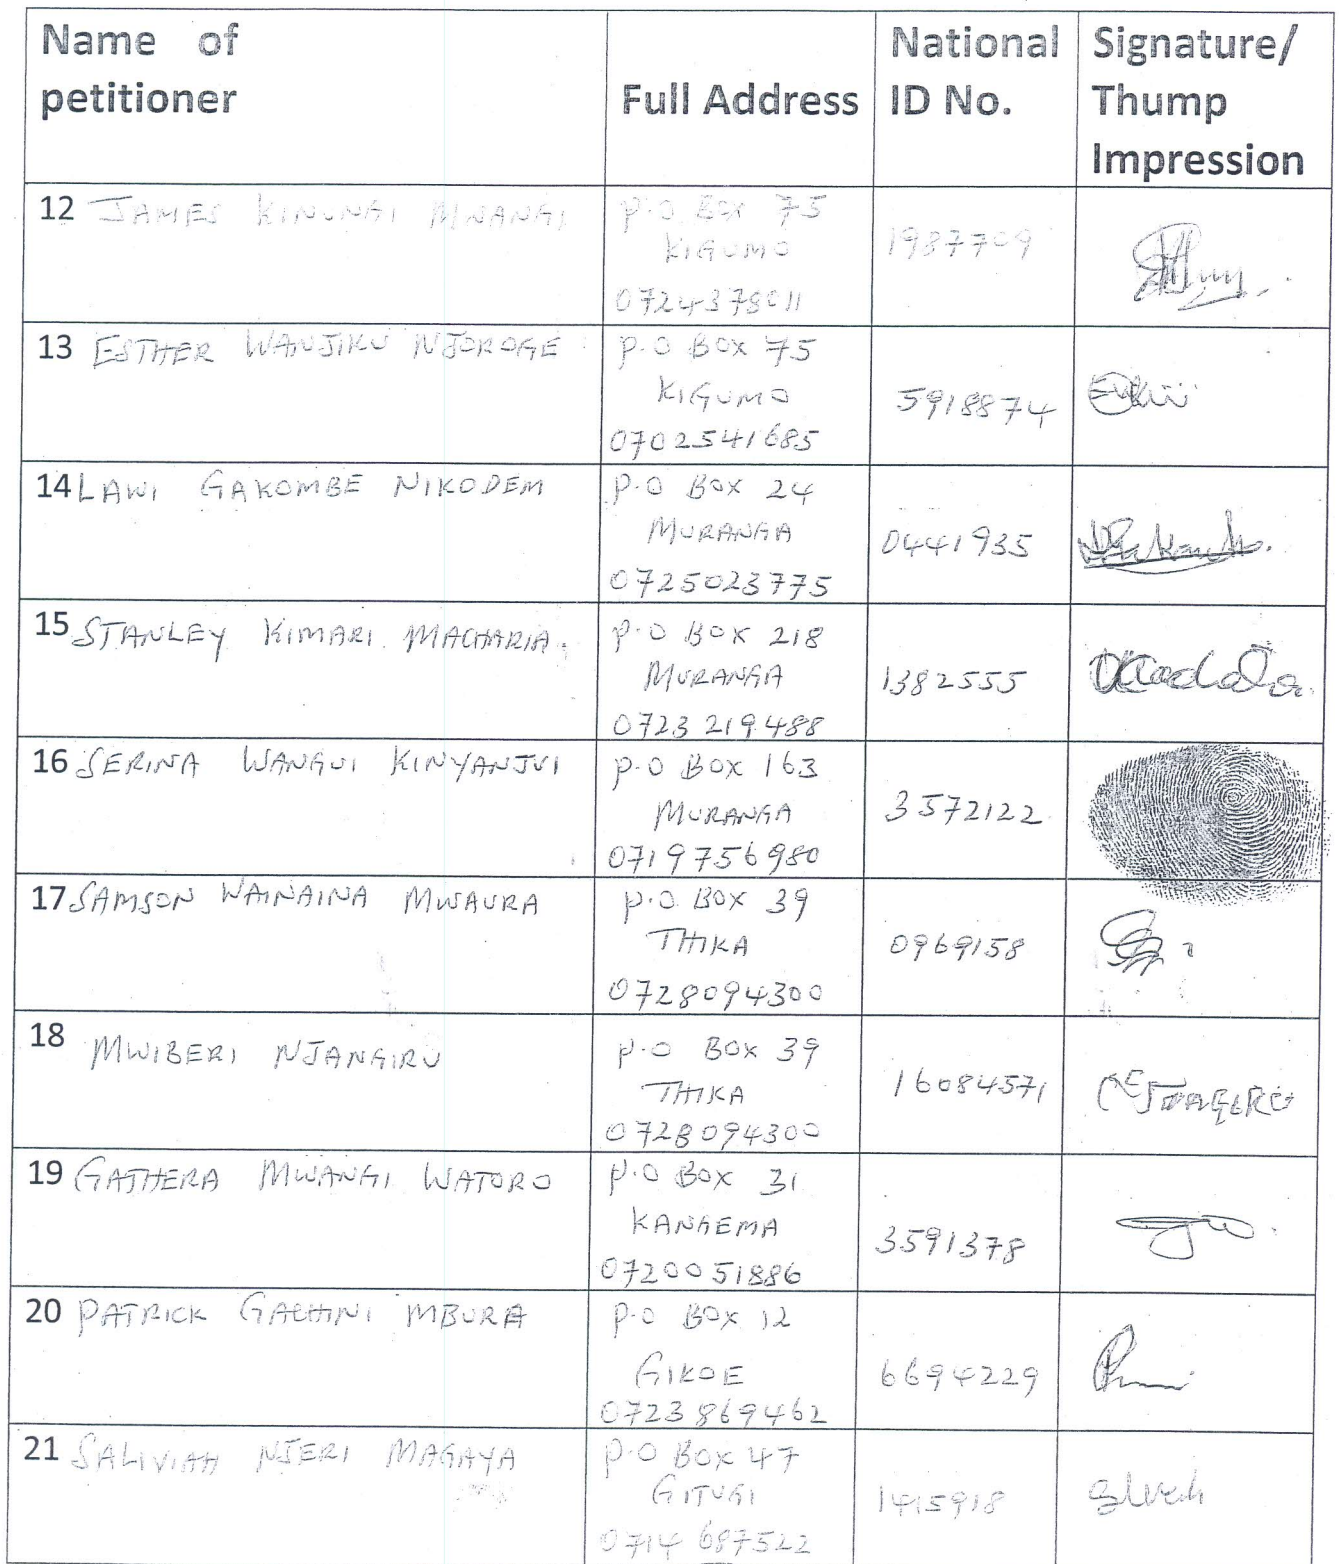 Name of petitioner
Full Address
National ID No.
Signature/ Thump Impression
12 JAMES KINUNGI MWANGI
P.O Box 75
KIGUMO
0724378011
1987709
13 ESTHER WANJIKU NJOROGE
P.O Box 75
KIGUMO
0702541685
5918874
14 LAWI GAKOMBE NIKODEM
P.O Box 24
MURANGA
0725023775
0441935
15 STANLEY KIMARI MACHARIA.
P.O BOX 218
MURANGA
0723 219488
1382555
16 SERINA WANGUI KINYANJUI
P.O BOX 163
MURANGA
0719756980
3572122
17 SAMSON WAINAINA MWAURA
P.O BOX 39
THIKA
0728094300
0969158
18 MWIBERI NJANGIRU
P.O BOX 39
THIKA
0728094300
16084571
19 GATHERA MWANGI WATORO
P.O BOX 31
KANGEMA
0720051886
3591378
20 PATRICK GACHINI MBURA
P.O BOX 12
GIKOE
0723869462
6694229
21 SALIVIAH NJERI MAGAYA
P.O BOX 47
GITUGI
0714 687522
1415918